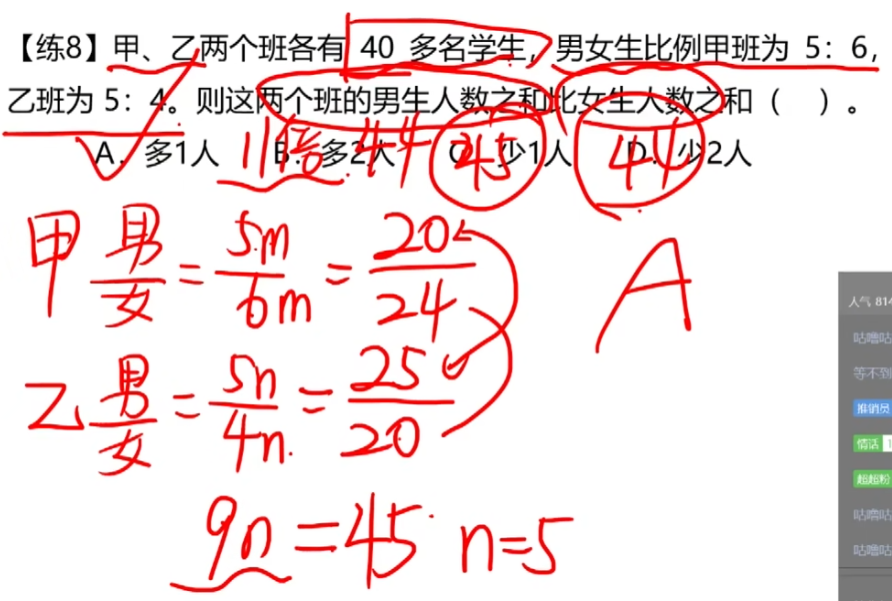 【练8】甲、乙两个班各有 40 多名学生，男女生比例甲班为 5：6，
乙班为 5：4。则这两个班的男生人数之和比女生人数之和（ ）。
A．多1人 B．多2人 C．少1人 D．少2人
11倍 44 45 44
甲 男/女 = 5m/6m = 20/24
A
乙 男/女 = 5n/4n = 25/20
9n=45 n=5
人气 814
咕噜咕
等不到
推销员
情话 1
超超粉
咕噜咕
咕噜咕